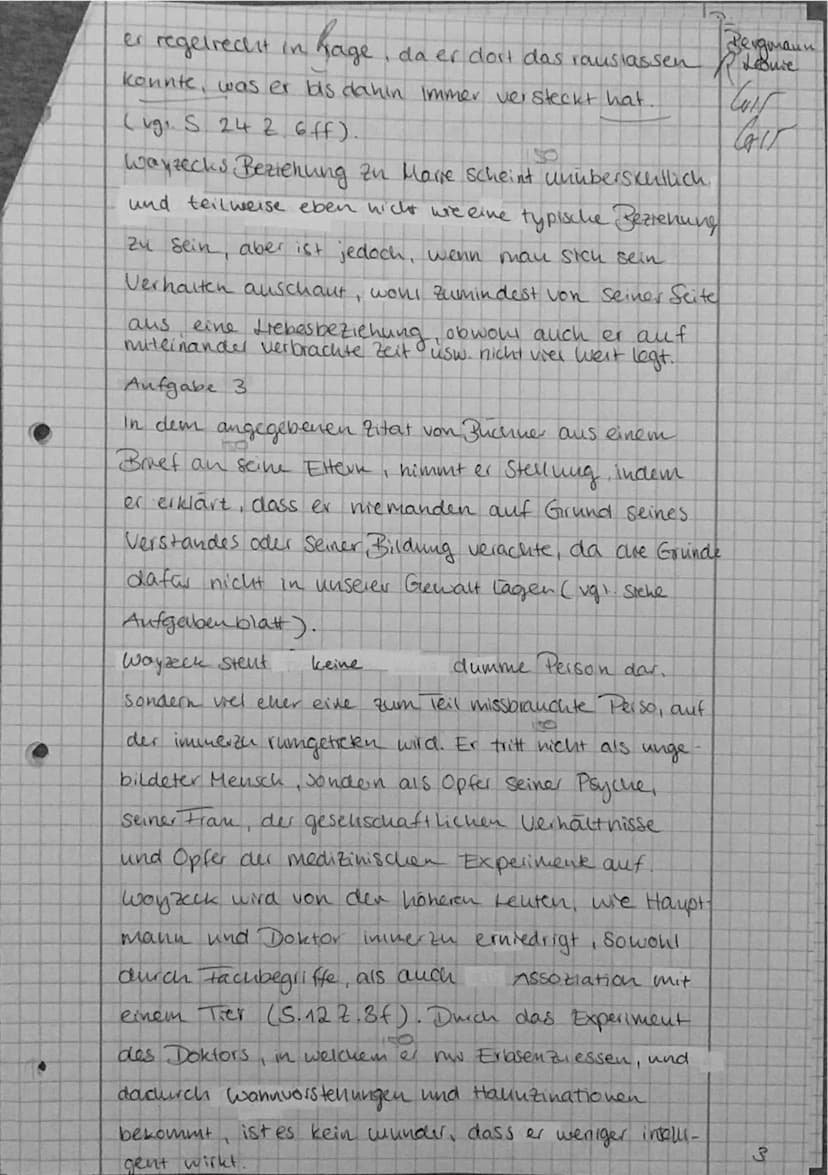 er regelrecht in Rage, da er dort das rauslassen
konnte, was er bis dahin immer versteckt hat.
(vgl. S 24 Z 6ff).
Woyzecks Beziehung zu Marie scheint unübersichtlich
50
und teilweise eben nicht wie eine typische Beziehung
zu sein, aber ist jedoch, wenn man sich sein
Verhalten anschaut, wohl zumindest von seiner Seite
aus eine Liebesbeziehung, obwohl auch er auf
miteinander verbrachte Zeit usw. nicht viel Wert legt.
Aufgabe 3
In dem angegebenen Zitat von Büchner aus einem
Brief an seine Eltern, nimmt er Stellung, indem
er erklärt, dass er niemanden auf Grund seines
Verstandes oder seiner Bildung verachte, da die Gründe
dafür nicht in unserer Gewalt lägen (vgl. siehe
Aufgabenblatt).
Woyzeck stellt keine dumme Person dar,
sondern viel eher eine zum Teil missbrauchte Perso, auf
der immerzu rumgetreten wird. Er tritt nicht als unge-
bildeter Mensch, sondern als Opfer seiner Psyche,
seiner Frau, der gesellschaftlichen Verhältnisse
und Opfer der medizinischen Experimente auf.
Woyzeck wird von den höheren Leuten, wie Haupt-
mann und Doktor immerzu erniedrigt, sowohl
durch Fachbegriffe, als auch Assoziation mit
einem Tier (S.12 Z.8f). Durch das Experiment
des Doktors, in welchem er nur Erbsen zu essen, und
dadurch Wahnvorstellungen und Halluzinationen
bekommt, ist es kein Wunder, dass er weniger intelli-
gent wirkt.
Bergmann
R
Gr
Gr
3